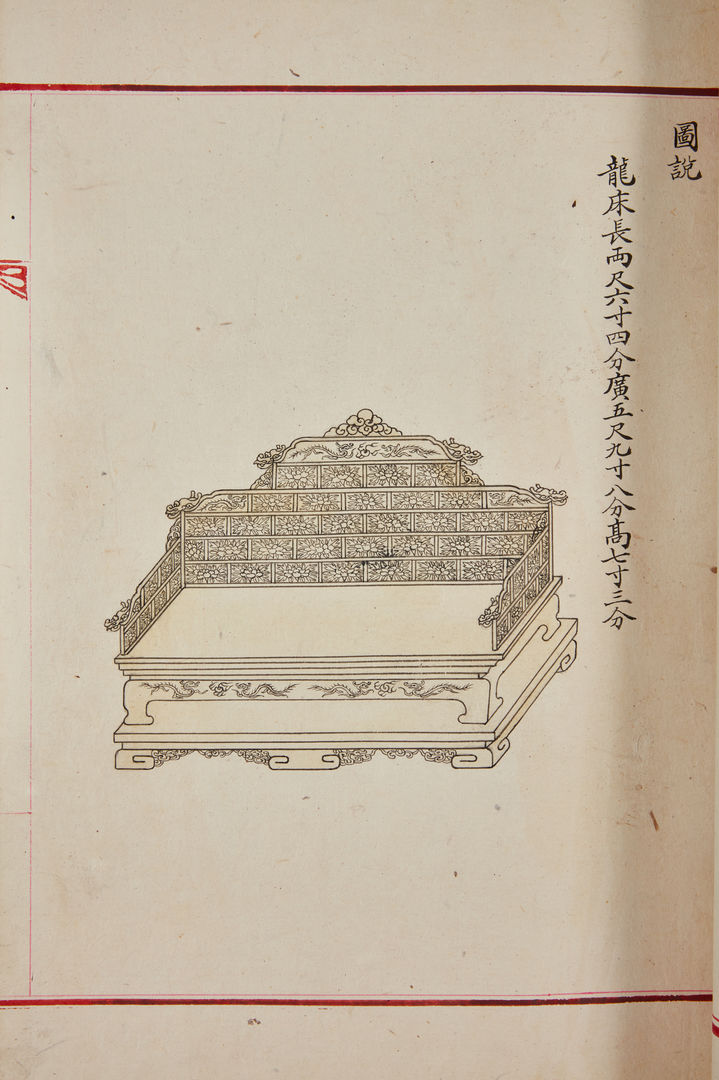 圖說
龍床長両尺六寸四分廣五尺九寸八分髙七寸三分